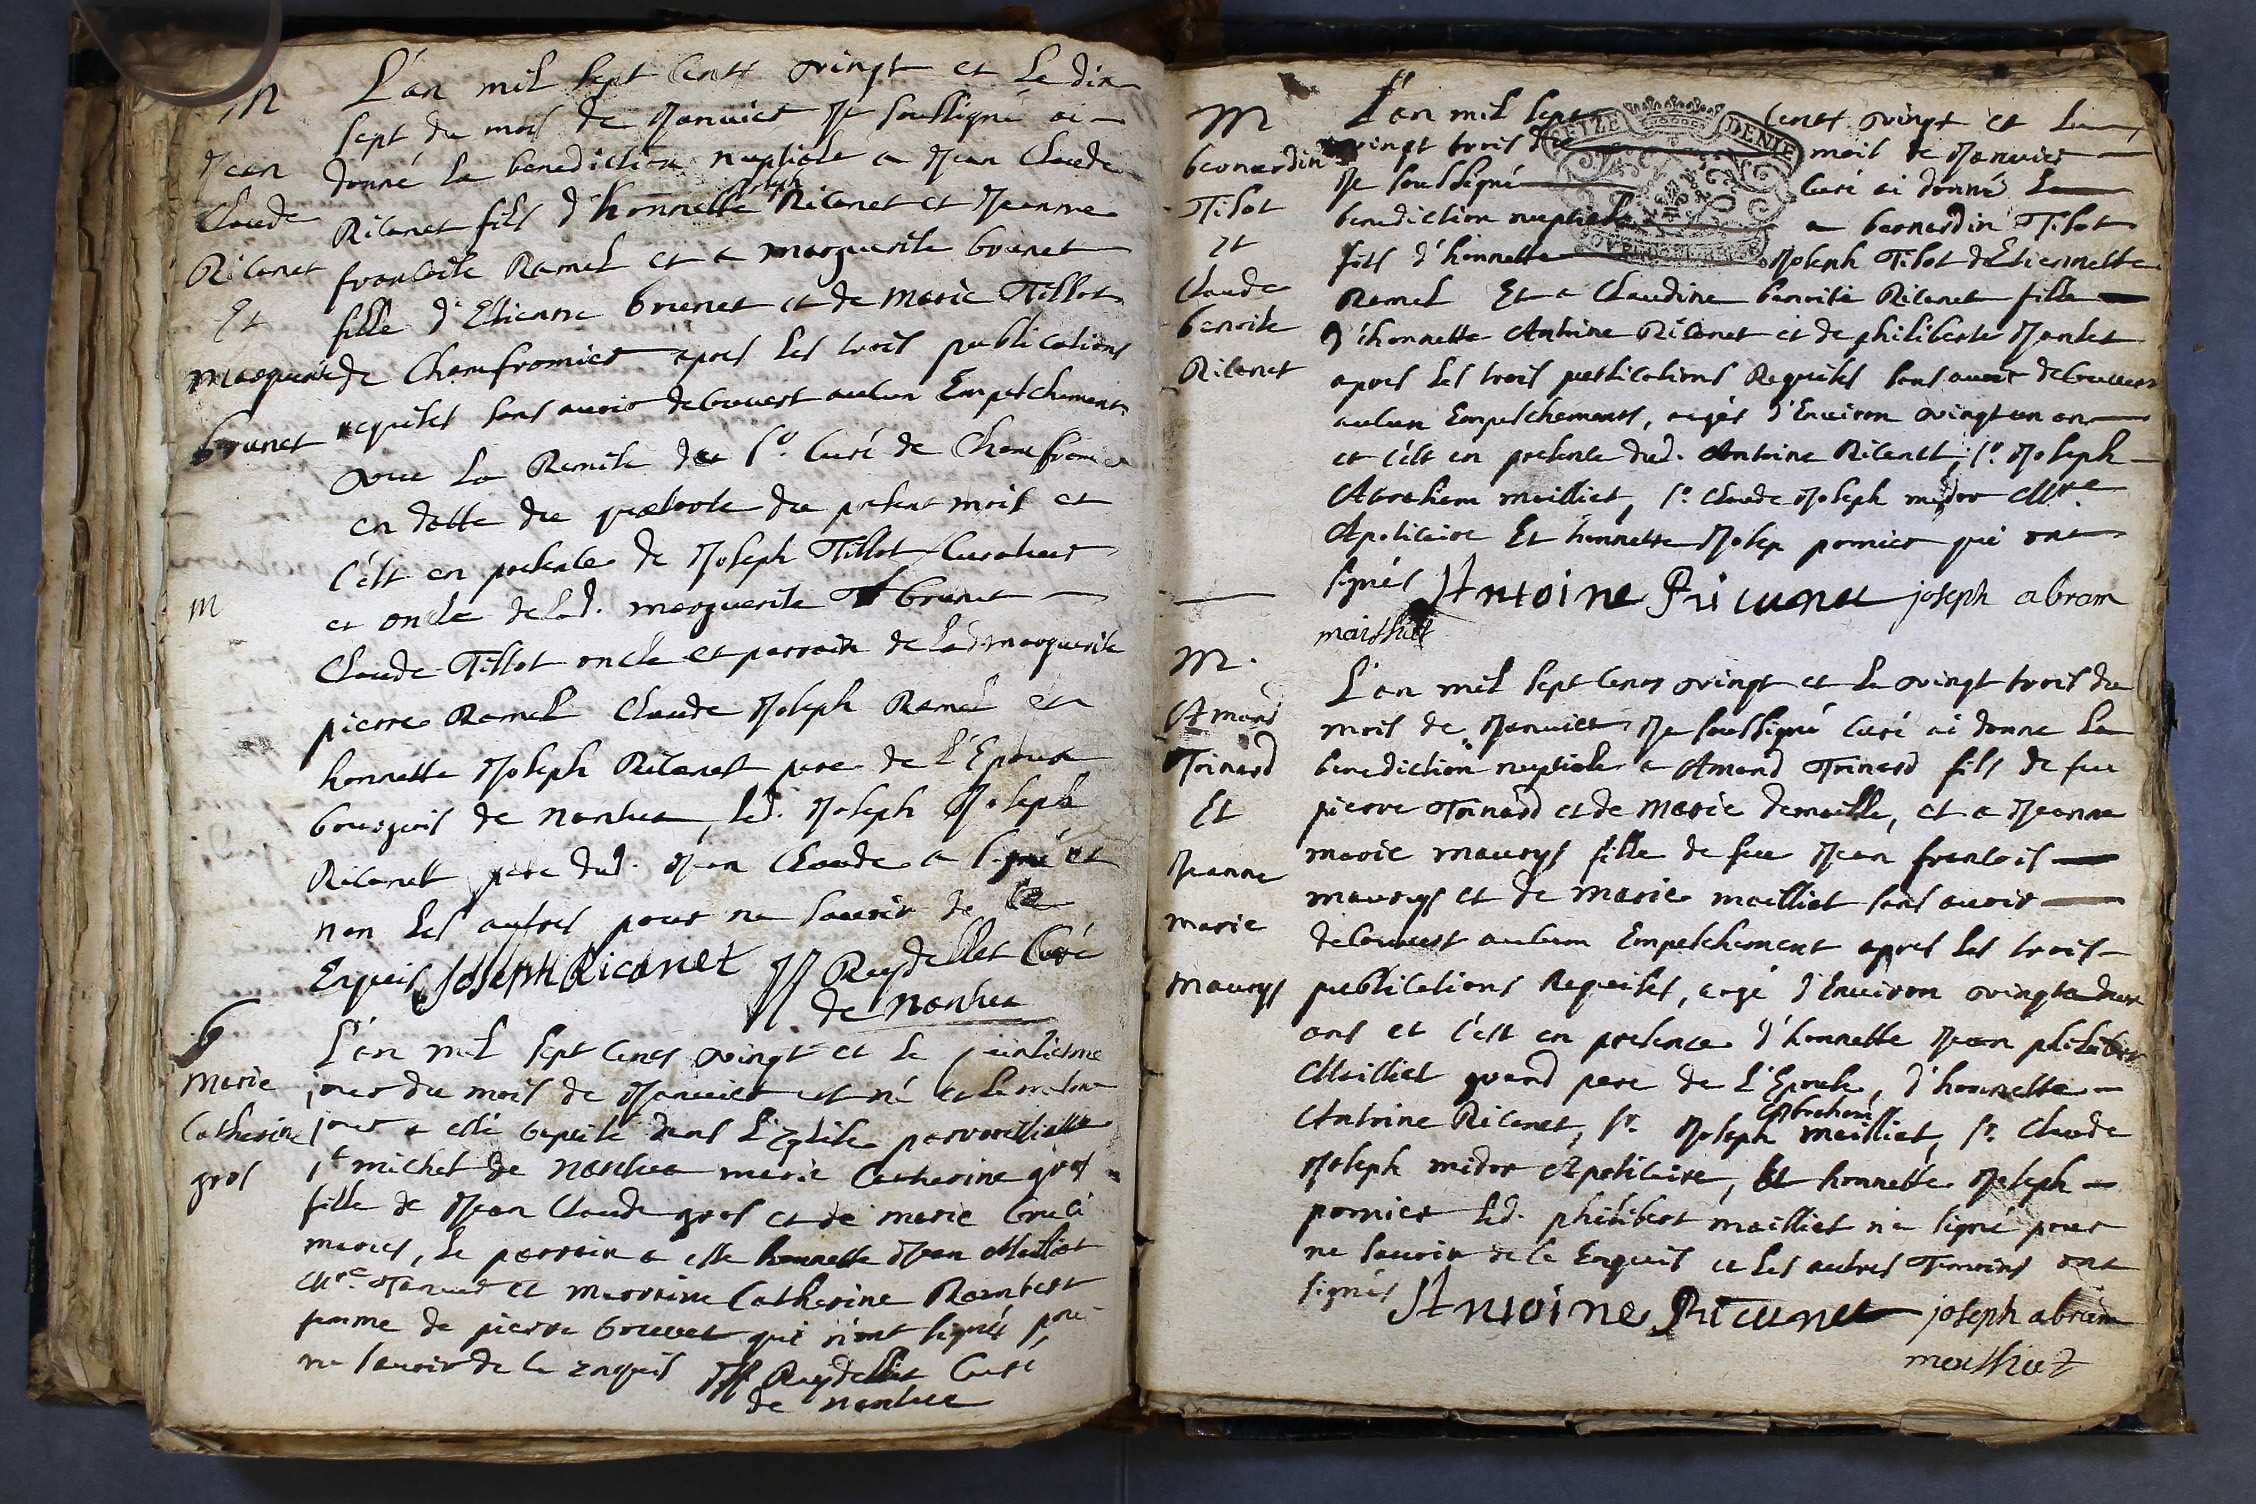 M
Jean
Claude
Ricanet
Et
Marguerite
brunet
L'an mil sept cents vingt et le dix
sept du mois de Janvier Je soussigné ai
donné la benediction nuptiale a Jean Claude
joseph
Ricanet fils d'honnette Ricanet et Jeanne
francoise Ramel et a marguerite brunet
fille d'Etienne brunet et de marie Tillot
de Champfromier apres les trois publications
requises sans avoir decouvert aucun Empeschement
veu la Remise du Sr. Curé de Champfromier
en datte du quatorze du present mois et
c'est en presence de Joseph Tillot Curateur
et oncle de lad. marguerite brunet
Claude Tillot oncle et parrain de lad. marguerite
pierre Ramel Claude Joseph Ramel et
honnette Joseph Ricanet pere de l'Epoux
bourgeois de nantua, led. Joseph Joseph
Ricanet pere dud. Jean Claude a signé et
non les autres pour ne scavoir de ce
Enquis Joseph Ricanet JJ Reydellet Curé
de nantua
M
B
Marie
Catherine
gros
L'an mil sept cents vingt et le quinziesme
jour du mois de Janvier est né et le mesme
jour a esté baptisé dans l'Eglise parroissialle
St michel de nantua marie Catherine gros
fille de Jean Claude gros et de marie
mariés, le parrain a esté honnette Jean Mailliet
Mre Taneur et marraine Catherine Rambert
femme de pierre qui n'ont signés pour
ne scavoir de ce enquis JJ Reydellet Curé
de nantua
M
bernardin
Tilot
et
Claude
benoite
Ricanet
L'an mil sept cents vingt et le
vingt trois du mois de Janvier
Je soussigné Curé ai donné la
benediction nuptiale a bernardin Tilot
fils d'honnette Joseph Tilot d'Etiennette
Ramel Et a Claudine benoite Ricanet fille
d'honnette Antoine Ricanet et de philiberte Jantet
apres les trois publications Requises sans avoir decouvert
aucun Empeschements, agés d'Environ vingt un an
et c'est en presence dud. Antoine Ricanet, Sr. Joseph
Abraham mailliet, Sr. Claude Joseph midor Mre
Apoticaire Et honnette Josep pornier qui ont
signés Antoine Ricanet joseph abram
mailliet
SEIZE DENIE
M.
Amand
Toinard
Et
Jeanne
marie
maurys
L'an mil sept cents vingt et le vingt trois du
mois de Janvier Je soussigné Curé ai donne la
benediction nuptiale a Amand Toinard fils de feu
pierre Toinard et de marie demaille, et a Jeanne
marie maurys fille de feu Jean francois
maurys et de marie mailliet sans avoir
decouvert aucun Empeschement apres les trois
publications Requises, agé d'Environ vingt deux
ans et c'est en presence d'honnette Jean philibert
Mailliet grand pere de l'Epouse, d'honnette
Abraham
Antoine Ricanet, Sr. Joseph mailliet, Sr. Claude
Joseph midor Apoticaire, Et honnette Joseph
pornier led. philibert mailliet n'a signé pour
ne scavoir de ce Enquis et les autres Temoins ont
signés Antoine Ricanet joseph abram